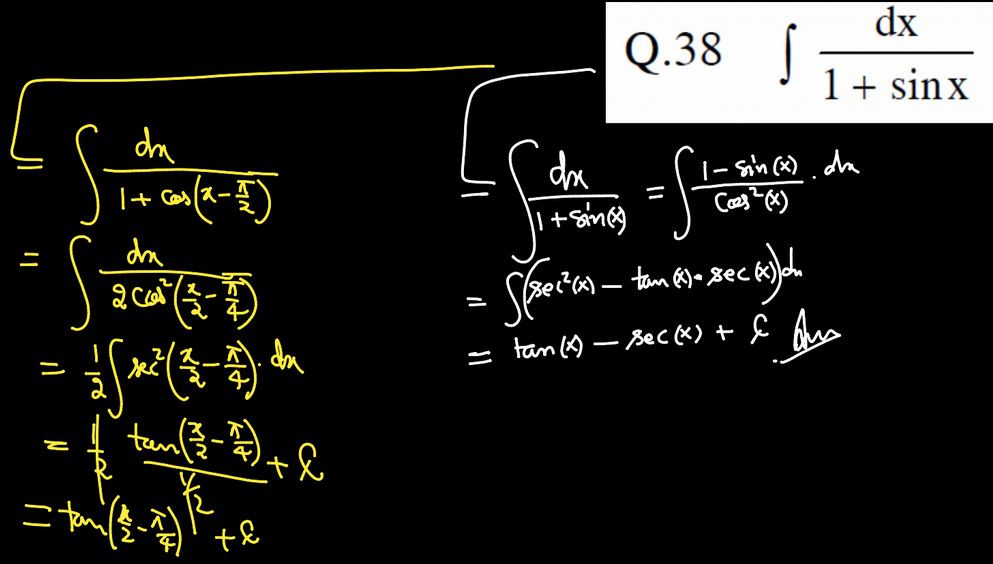 Q.38 ∫ dx / (1 + sin x)
= ∫ dx / (1 + cos(x - π/2))
= ∫ dx / (2 cos²(x/2 - π/4))
= 1/2 ∫ sec²(x/2 - π/4) . dx
= 1/2 tan(x/2 - π/4) / (1/2) + C
= tan(x/2 - π/4) + C
= ∫ dx / (1 + sin(x)) = ∫ (1 - sin(x)) / cos²(x) . dx
= ∫ (sec²(x) - tan(x) · sec(x)) dx
= tan(x) - sec(x) + C Ans